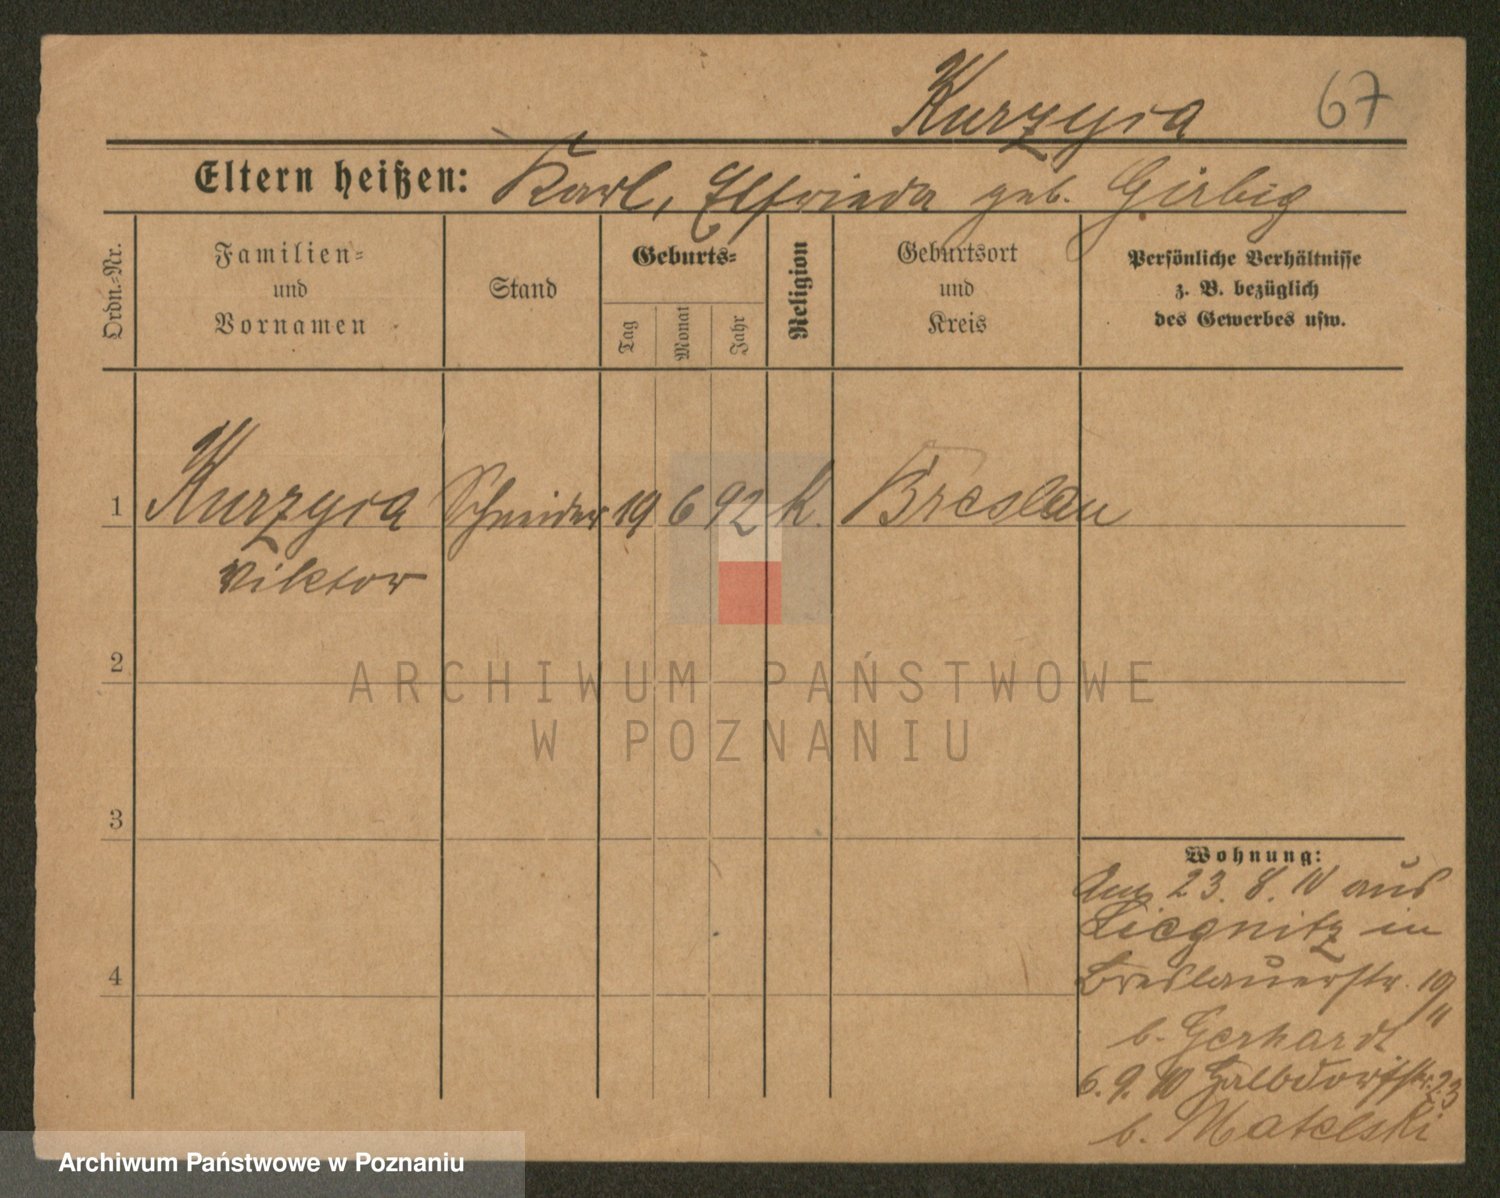 Kurzyia 67
Eltern heißen: Karl, Elfrieda geb. Girbig
Ordn.-Nr.
Familien-
und
Vornamen
Stand
Geburts-
Tag
Monat
Jahr
Religion
Geburtsort
und
Kreis
Persönliche Verhältnisse
z. B. bezüglich
des Gewerbes usw.
1 Kurzyia Schneider 19 6 92 K. Breslau
Viktor
2
3
4
Wohnung:
23. 8. 10 aus
Liegnitz in
Breslauerstr. 19
b. Gerhardt
6. 9. 10 Halbdorfstr. 23
b. Matelski
ARCHIWUM PAŃSTWOWE
W POZNANIU
Archiwum Państwowe w Poznaniu